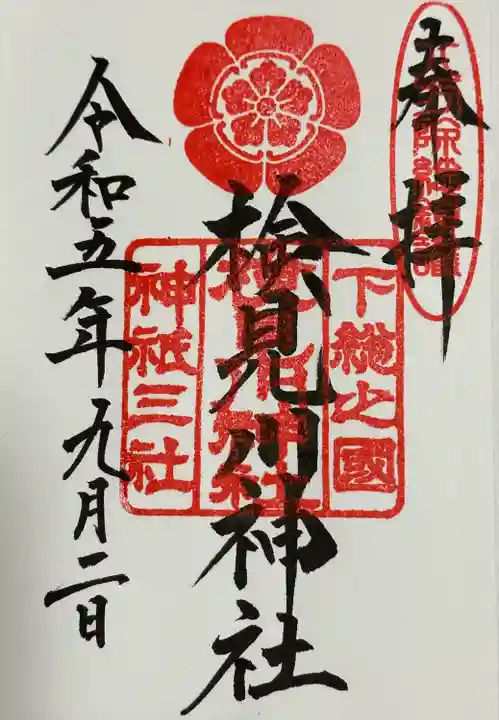 奉拝
下総之國
検見川神社
検見川神社
神祇三社
令和五年九月二日